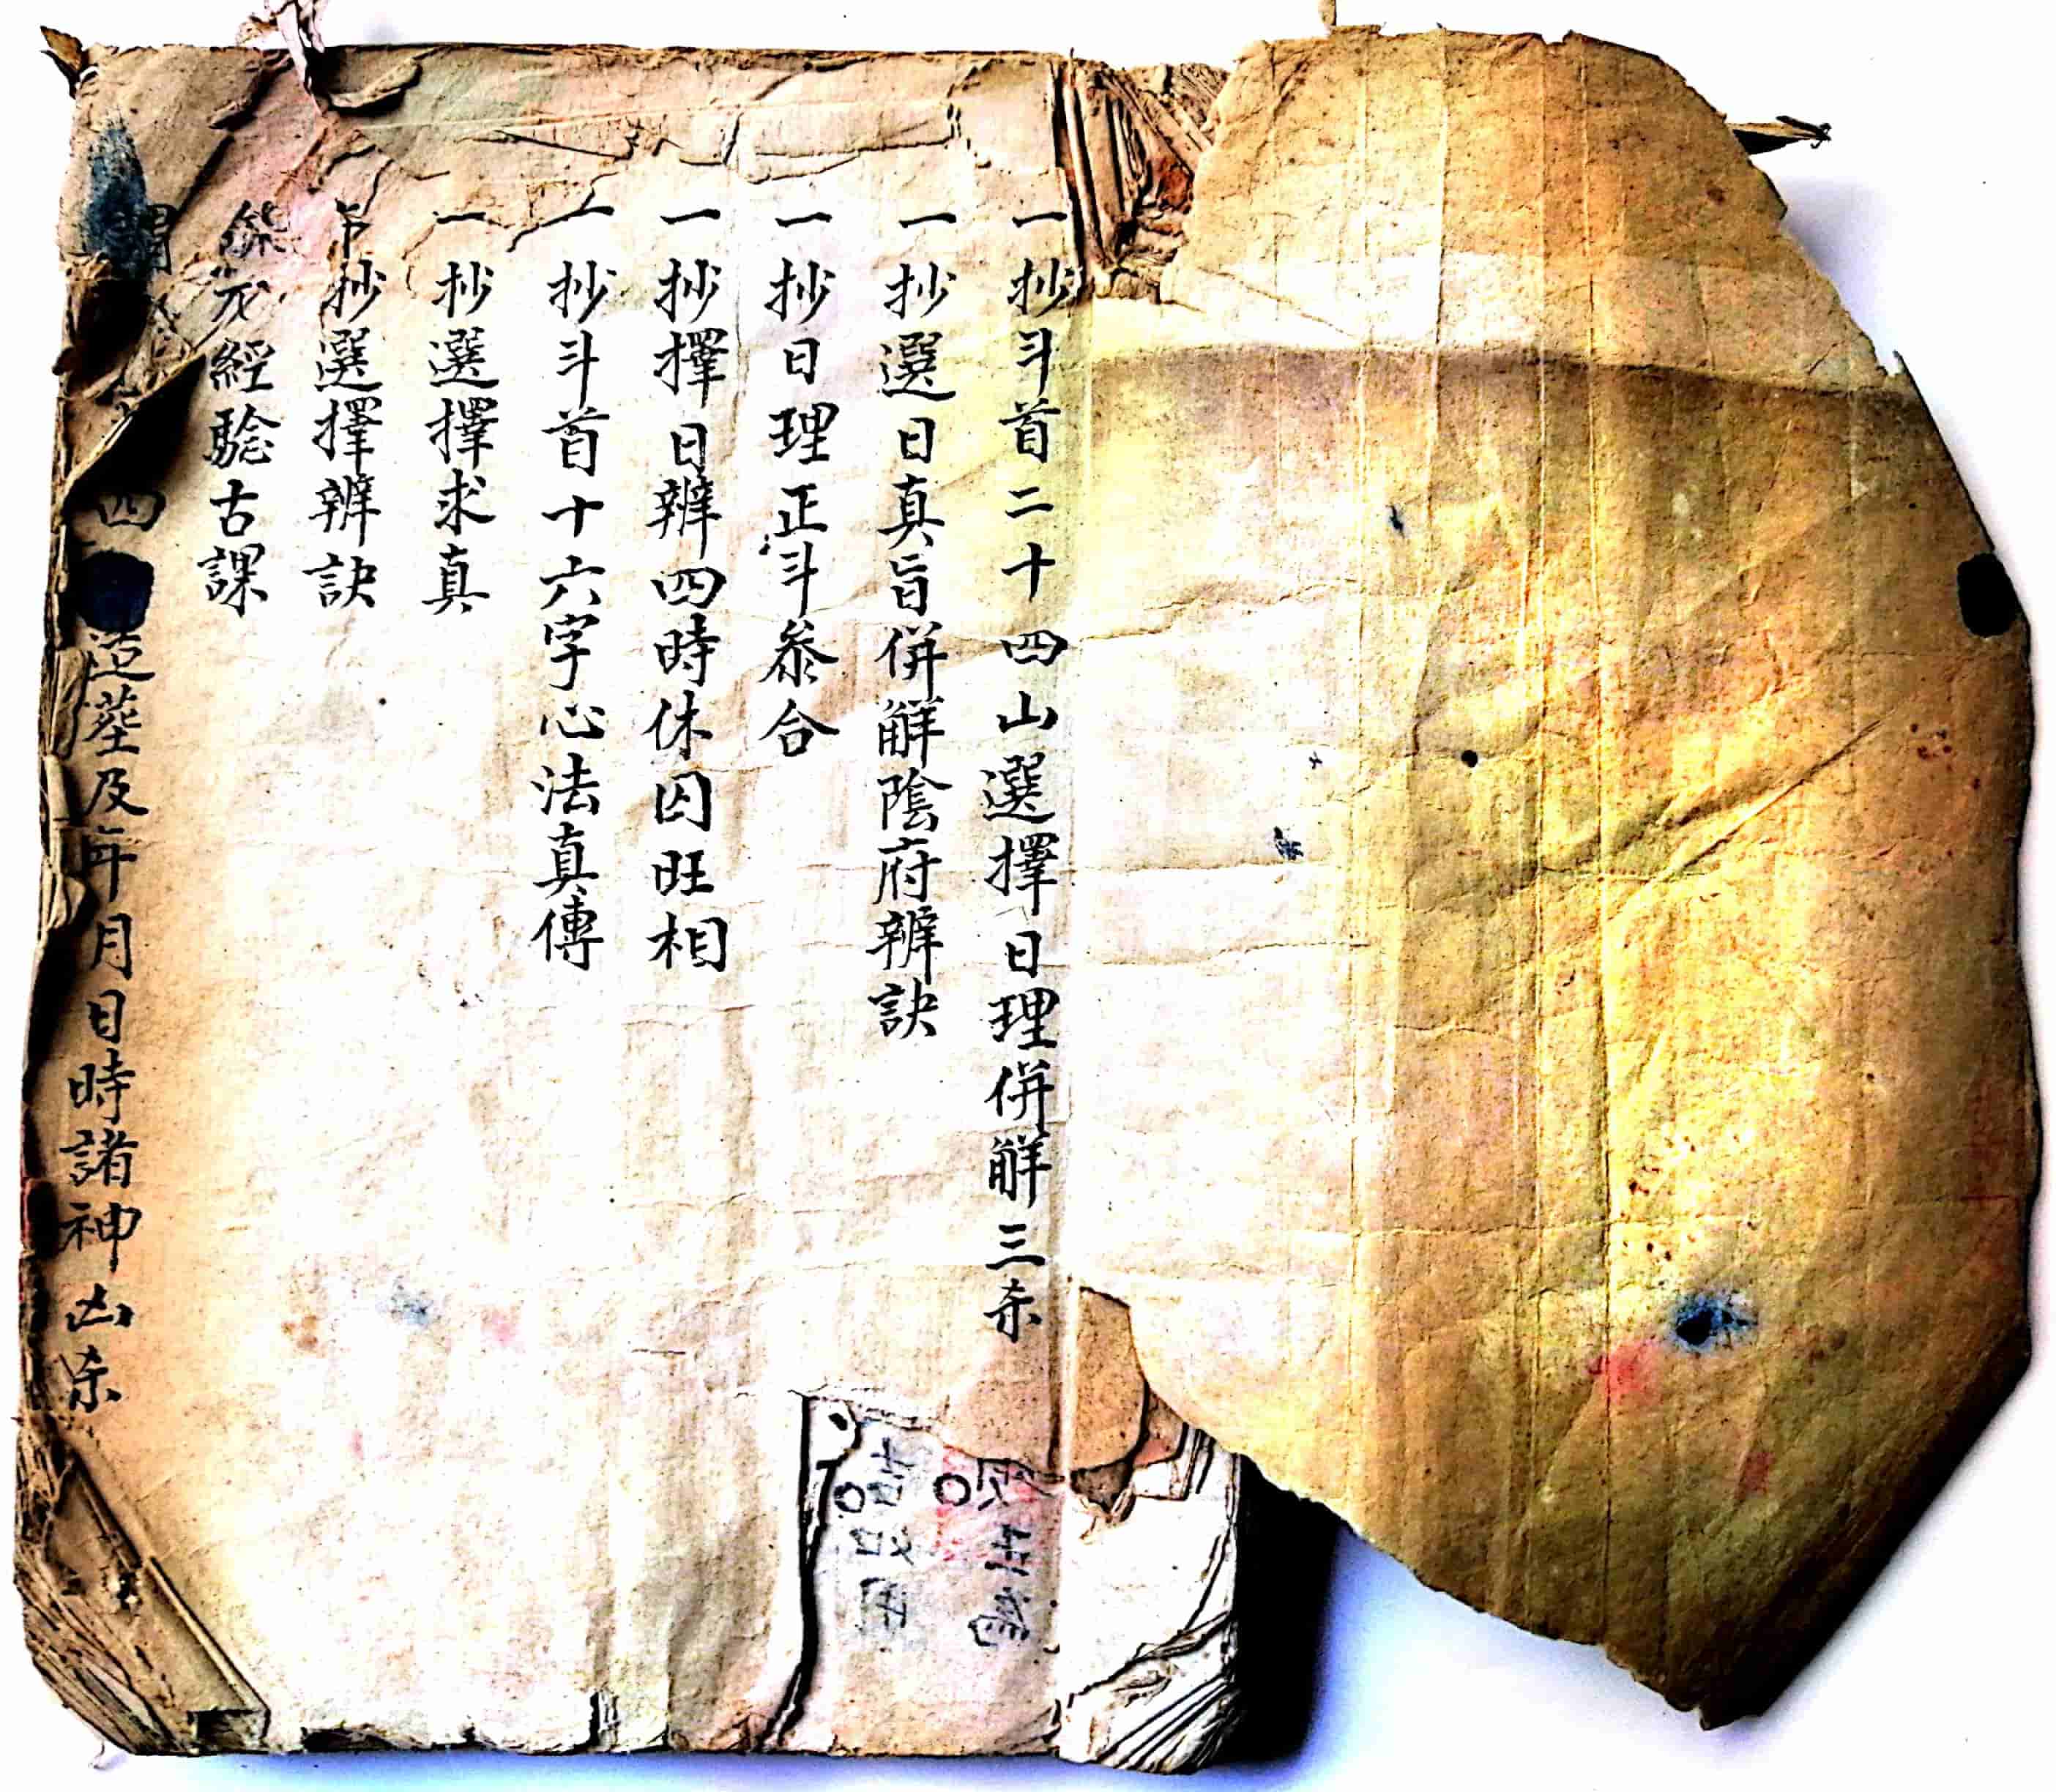 一抄斗首二十四山選擇日理併觧三杀
一抄選日真旨併觧陰府辨訣
一抄日理正斗叅合
一抄擇日辨四時休囚旺相
一抄斗首十六字心法真傳
一抄選擇求真
抄選擇辨訣
經驗古課
四 造塟及年月日時諸神凶杀